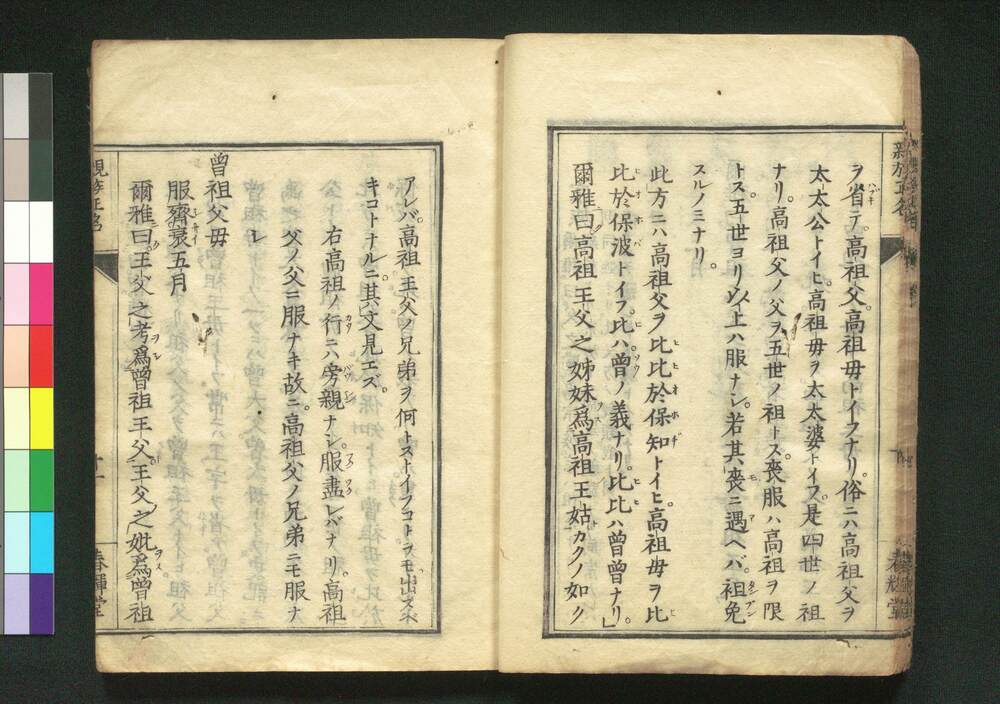 ヲ省テ。高祖父。高祖毋トイフナリ。俗ニハ高祖父ヲ
太太公トイヒ。高祖毋ヲ太太婆トイフ。是四世ノ祖
ナリ。高祖父ノ父ヲ五世ノ祖トス。喪服ハ高祖ヲ限
トス。五世ヨリ以上ハ服ナシ。若其喪ニ遇ヘバ。袒免
スルノミナリ。
此方ニハ高祖父ヲ比比於保知トイヒ。高祖毋ヲ比
比於保波トイフ。比ハ曾ノ義ナリ。比比ハ曾曾ナリ。
爾雅曰。高祖王父之姊妹爲高祖王姑。カクノ如ク
アレバ。高祖王父ノ兄弟ヲ何トストイフコトヲモ出スベ
キコトナルニ。其文見エズ。
右高祖ノ行ニハ旁親ナシ。服盡レバナリ。高祖
父ノ父ニ服ナキ故ニ。高祖父ノ兄弟ニモ服ナ
シ
曾祖父毋
服齊衰五月
爾雅曰。王父之考爲曾祖王父。王父之妣爲曾祖
親族正名
十一
春輝堂